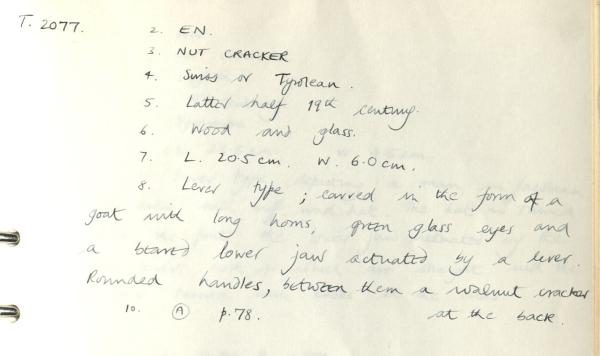 T. 2077.
2. EN.
3. NUT CRACKER
4. Swiss or Tyrolean.
5. Latter half 19th century.
6. Wood and glass.
7. L. 20.5cm. W. 6.0cm.
8. Lever type; carved in the form of a
goat with long horns, green glass eyes and
a beard lower jaw actuated by a lever.
Rounded handles, between them a walnut cracker
at the back.
10. A p.78.